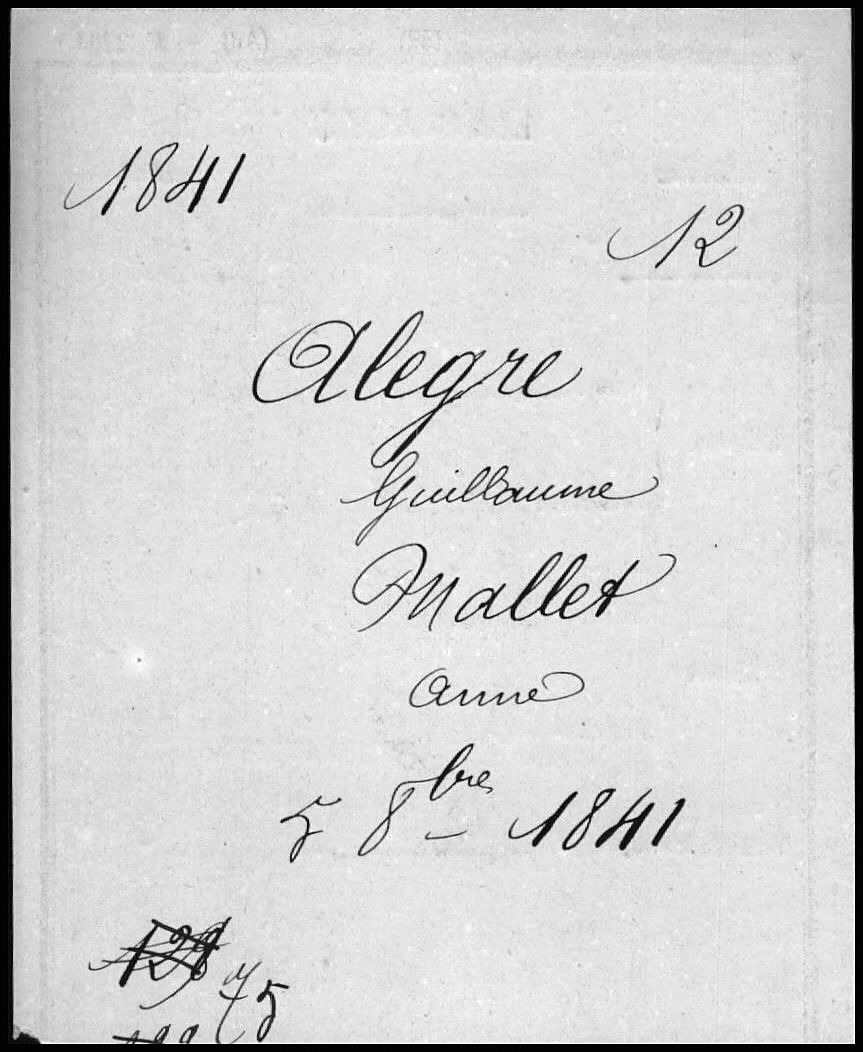 1841
12
Alegre
Guillaume
Mallet
Anne
5 8bre 1841
75